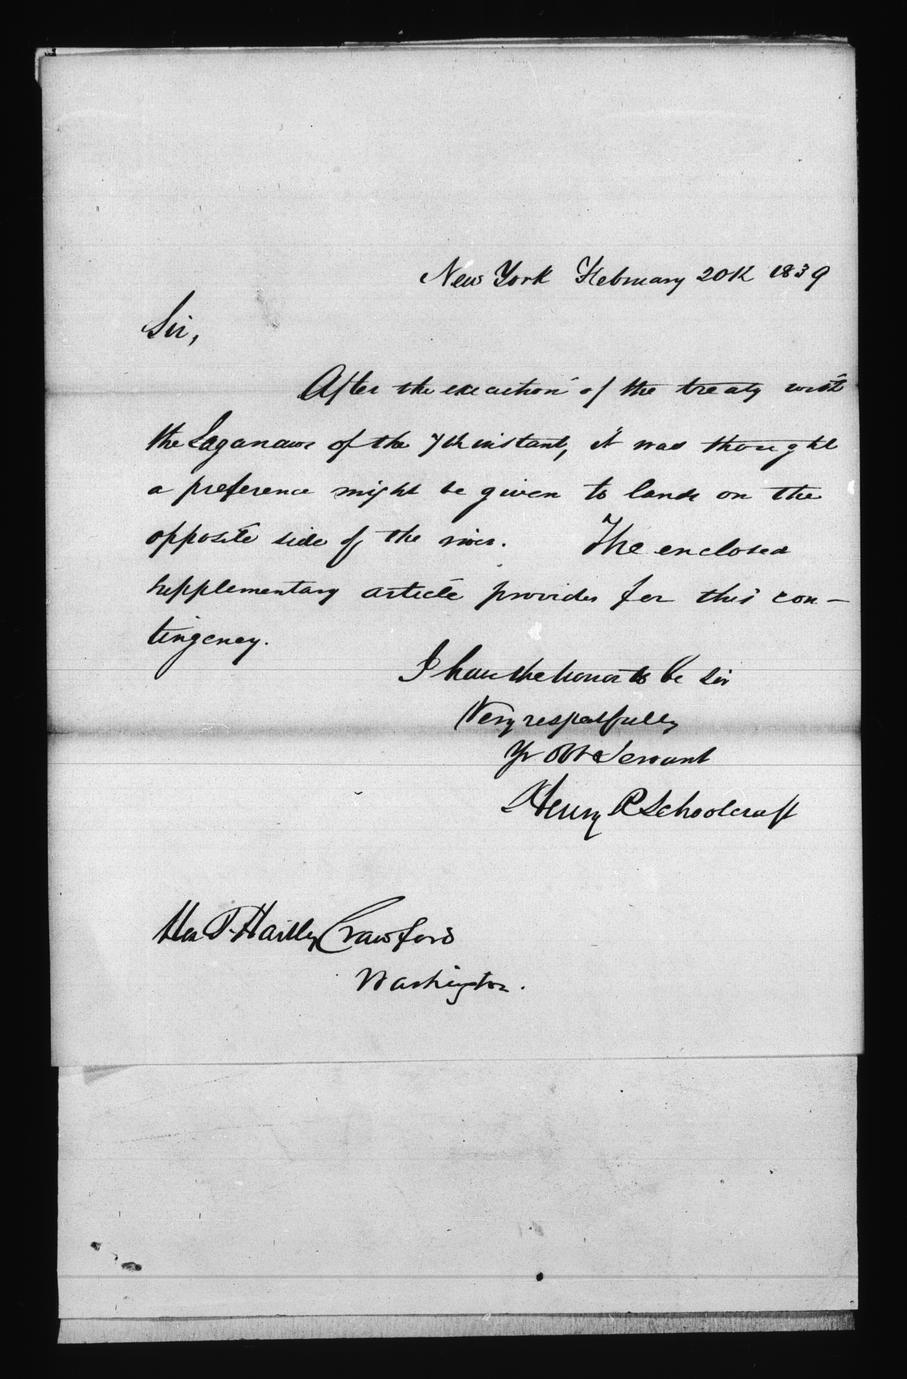 New York February 20th 1839
Sir,
After the execution of the treaty with
the Saganaws of the 7th instant, it was thought
a preference might be given to lands on the
opposite side of the river. The enclosed
supplementary article provides for this con-
tingency.
I have the honor to be Sir
Very respectfully
Yr Obt Servant
Henry R Schoolcraft
Hon T. Hartley Crawford
Washington.